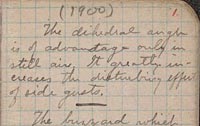 (1900)
1
The dihedral angle
is of advantage only in
still air. It greatly in-
creases the disturbing effect
of side gusts.
The buzzard which